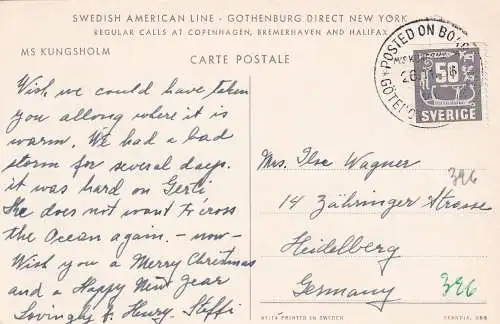 SWEDISH AMERICAN LINE - GOTHENBURG DIRECT NEW YORK
REGULAR CALLS AT COPENHAGEN, BREMERHAVEN AND HALIFAX
MS KUNGSHOLM
CARTE POSTALE
POSTED ON BO
26
GÖTE
50
SVERIGE
Wish we could have taken
you allong where it is
warm. We had a bad
storm for several days.
it was hard on Gerti
She does not want to cross
the Ocean again. - now -
Wish you a Merry Christmas
and a Happy New Year
Lovingly Henry - Steffi
Mrs. Ilse Wagner
14 Zähringer Strasse
Heidelberg
Germany
396
396
PRINTED IN SWEDEN